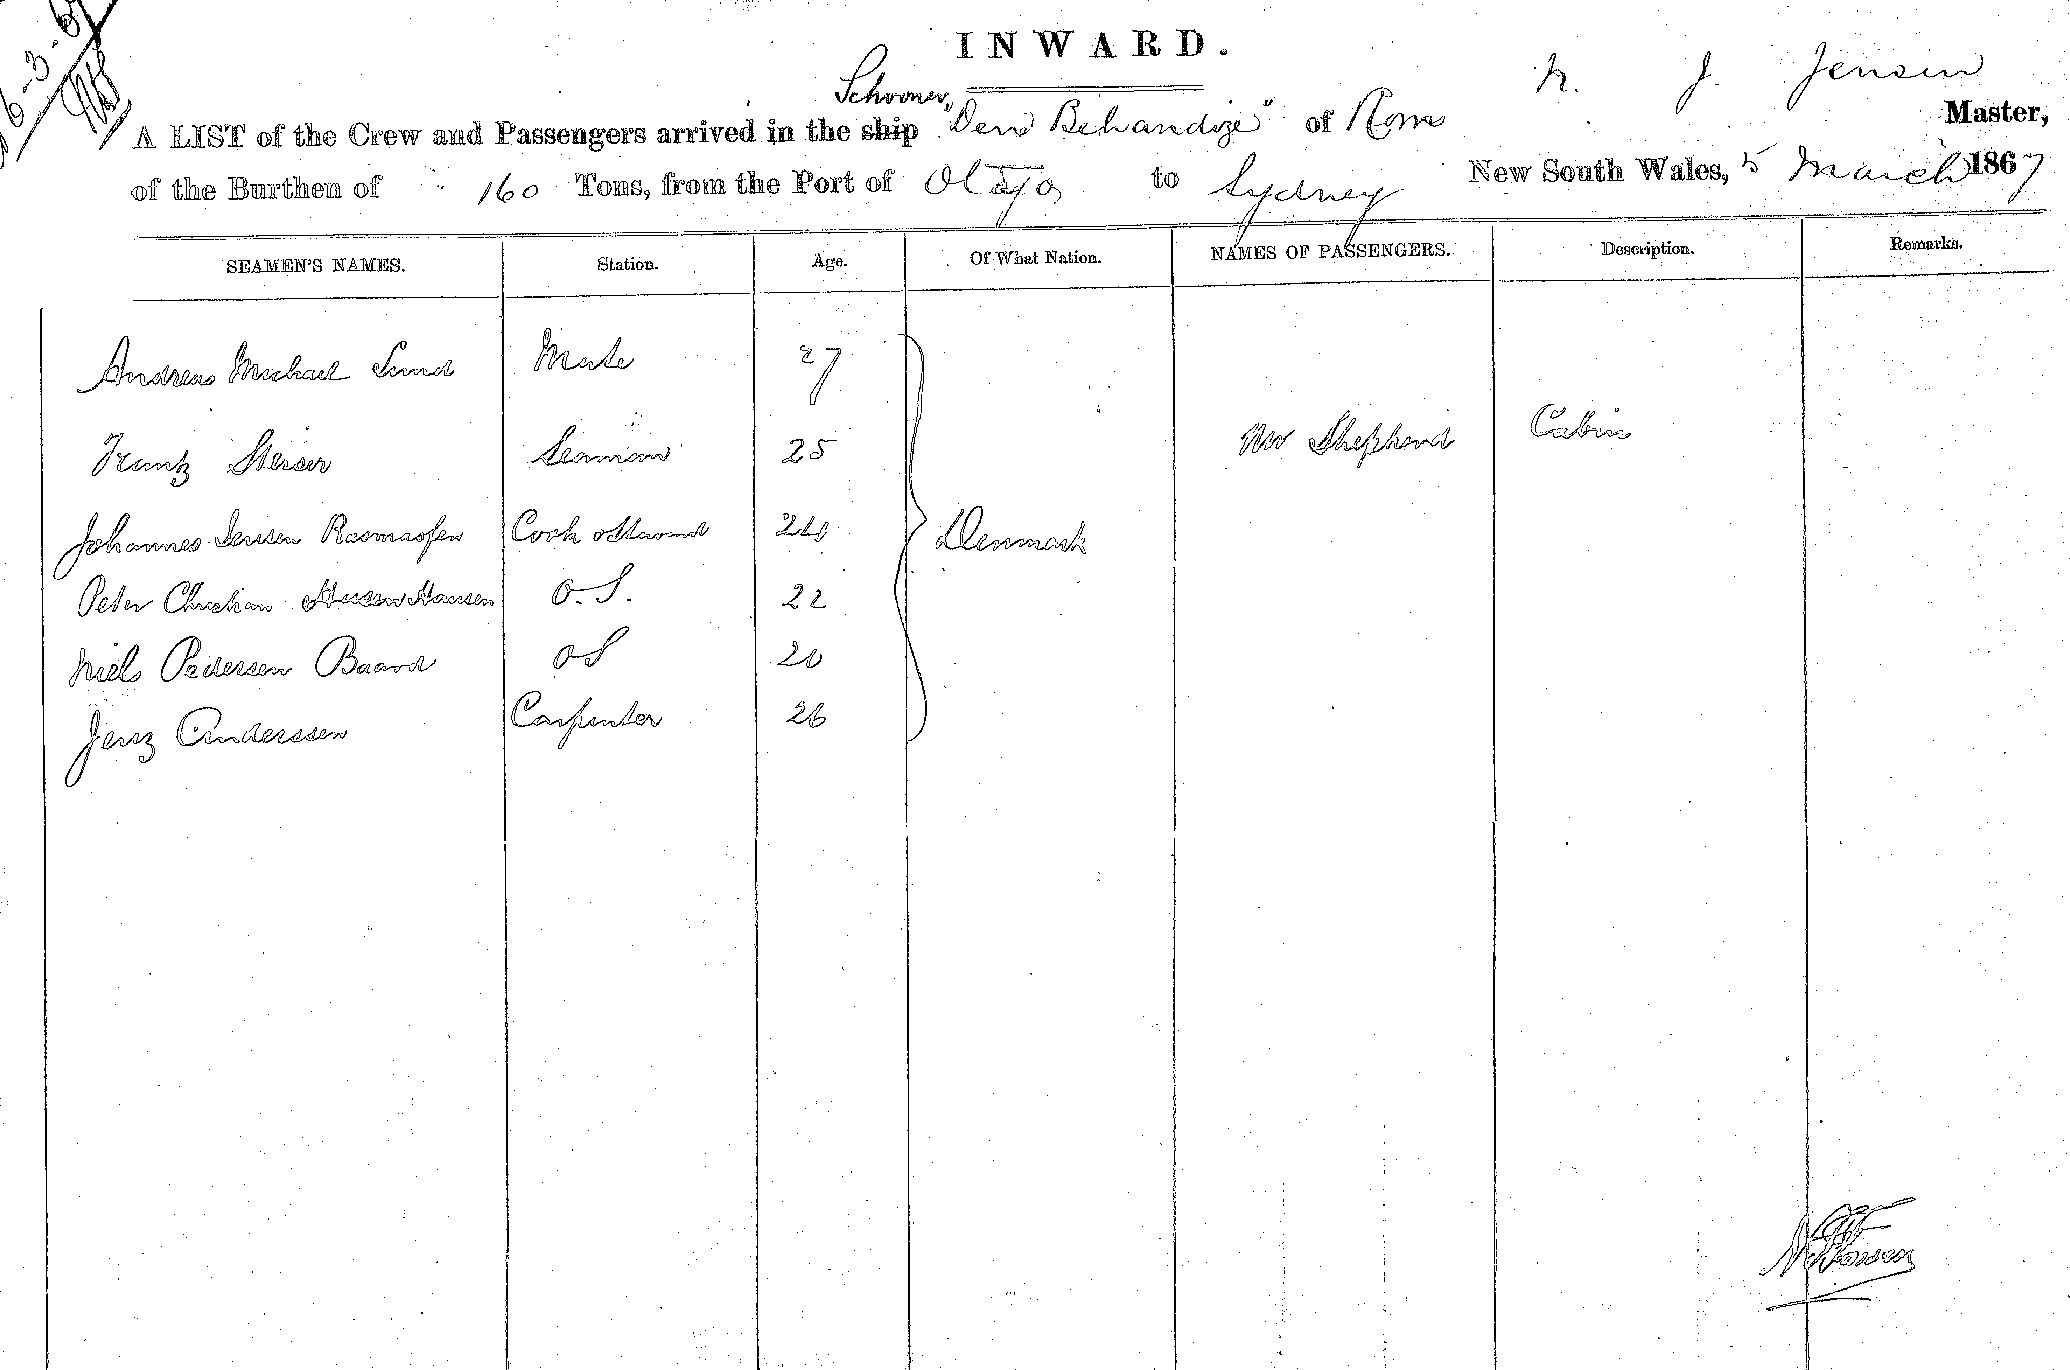 6-3-67
INWARD.
N. J. Jensen
Schooner
A LIST of the Crew and Passengers arrived in the ship "Den Behandize" of Rom Master,
of the Burthen of 160 Tons, from the Port of Otago to Sydney New South Wales, 5 March 1867
SEAMEN'S NAMES. Station. Age. Of What Nation. NAMES OF PASSENGERS. Description. Remarks.
Andreas Michael Lund Mate 27
Frantz Steiser Seaman 25 Mr Shepherd Cabin
Johannes Jensen Rasmussen Cook & Steward 24 Denmark
Peter Christian Hansen O.S. 22
Niels Pedersen Baand OS 20
Jenz Anderssen Carpenter 26